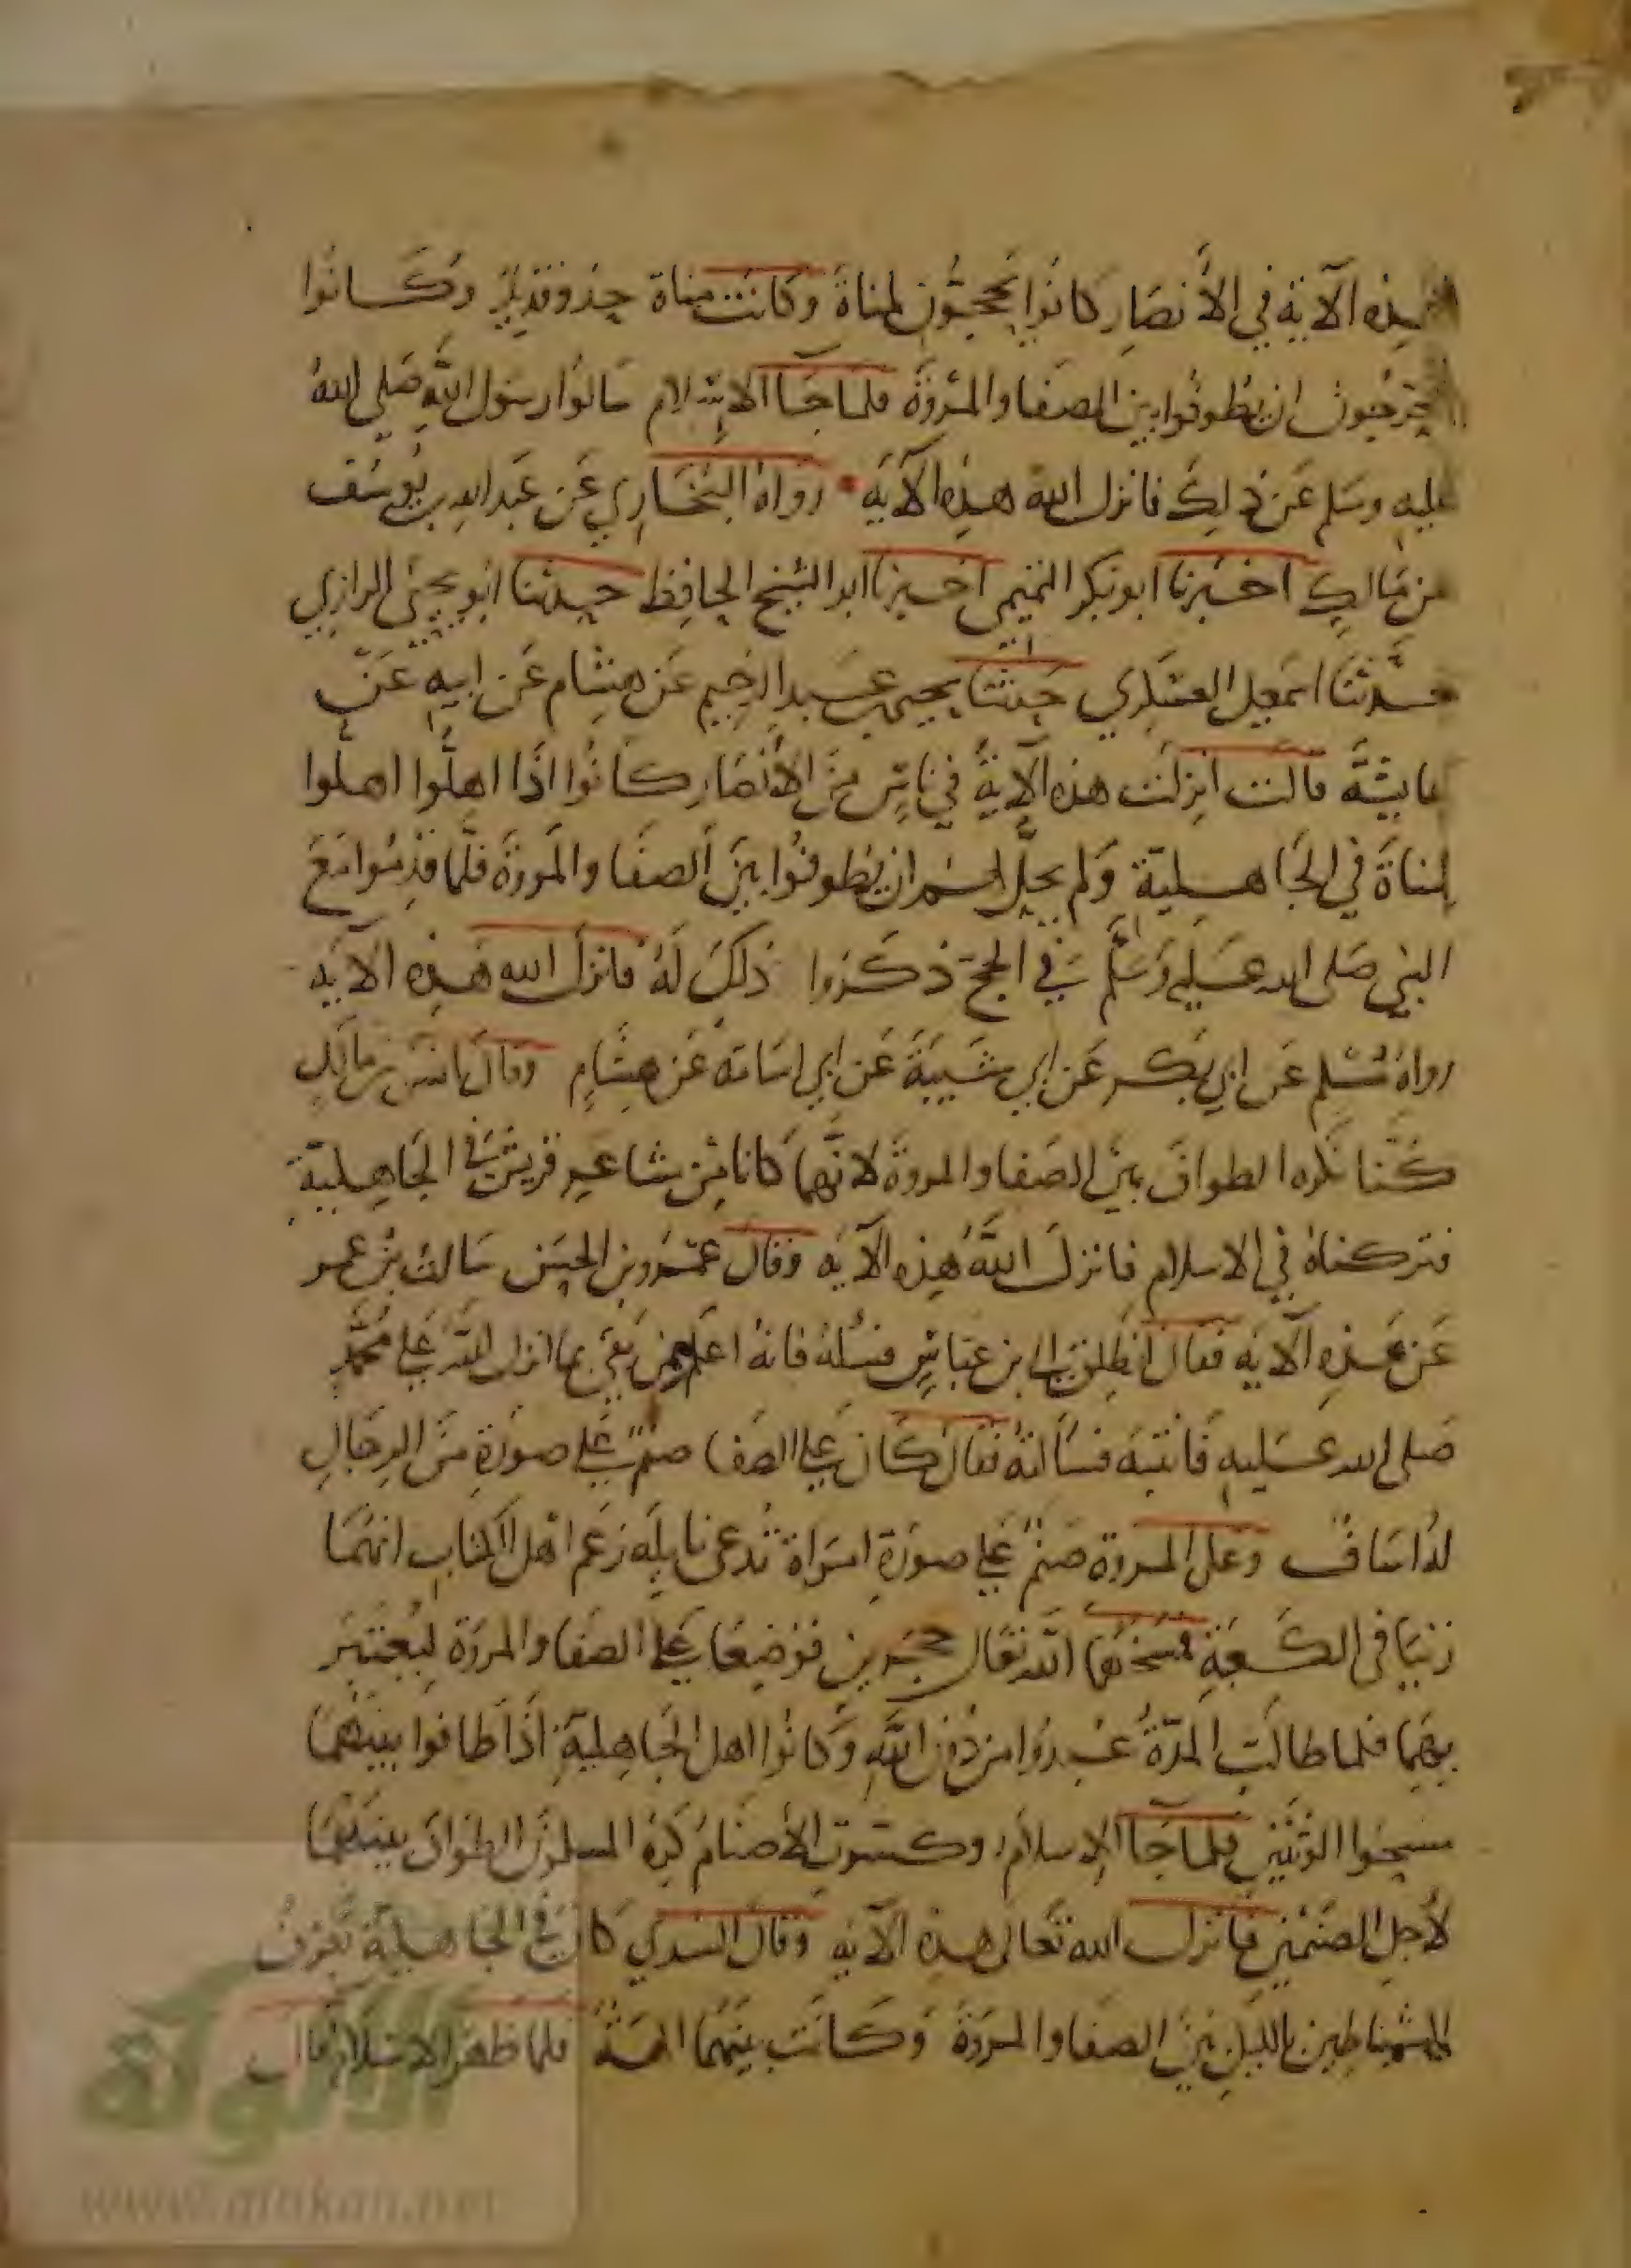 هذه الآية في الأنصار كانوا يحجون لمناة وكانت مناة حذو قديد وكانوا
يتحرجون ان يطوفوا بين الصفا والمروة فلما جآ الاسلام سالوا رسول الله صلى الله
عليه وسلم عن ذلك فانزل الله هذه الآية رواه البخاري عن عبد الله بن يوسف
عن مالك اخبرنا ابو بكر التميمي اخبرنا ابو الشيخ الحافظ حدثنا ابو يحيى الرازي
حدثنا سهل العسكري حدثنا يحيى عبد الرحيم عن هشام عن ابيه عن
عايشة قالت انزلت هذه الآية في ناس من الأنصار كانوا اذا اهلوا اهلوا
لمناة في الجاهلية ولم يحل لهم ان يطوفوا بين الصفا والمروة فلما قدموا مع
النبي صلى الله عليه وسلم في الحج ذكروا ذلك له فانزل الله هذه الآية
رواه مسلم عن ابي بكر عن ابي شيبة عن ابي اسامة عن هشام وقال انس بن مالك
كنا نكره الطواف بين الصفا والمروة لانهما كانا من مشاعر قريش في الجاهلية
فتركناه في الاسلام فانزل الله هذه الآية وقال عمرو بن الحسن سالت بن عمر
عن هذه الآية فقال انطلق الى بن عباس فسله فانه اعلم من بقي بما انزل الله على محمد
صلى الله عليه فاتيته فسألته فقال كان على الصفا صنم على صورة من الرجال
له اساف وعلى المروة صنم على صورة امراة تدعى نايلة زعم اهل الكتاب انهما
زنيا في الكعبة فمسخهما الله تعالى حجرين فوضعا على الصفا والمروة ليعتبر
بهما فلما طالت المدة عبدوا من دون الله وكانوا اهل الجاهلية اذا طافوا بينهما
مسحوا الوثنين فلما جآ الاسلام وكسرت الأصنام كره المسلمون الطواف بينهما
لأجل الصنمين فانزل الله تعالى هذه الآية وقال السدي كان في الجاهلية تعزف
الشياطين بالليل بين الصفا والمروة وكانت بينهما الهة فلما ظهر الاسلام قال
الألوكة
www.alukah.net